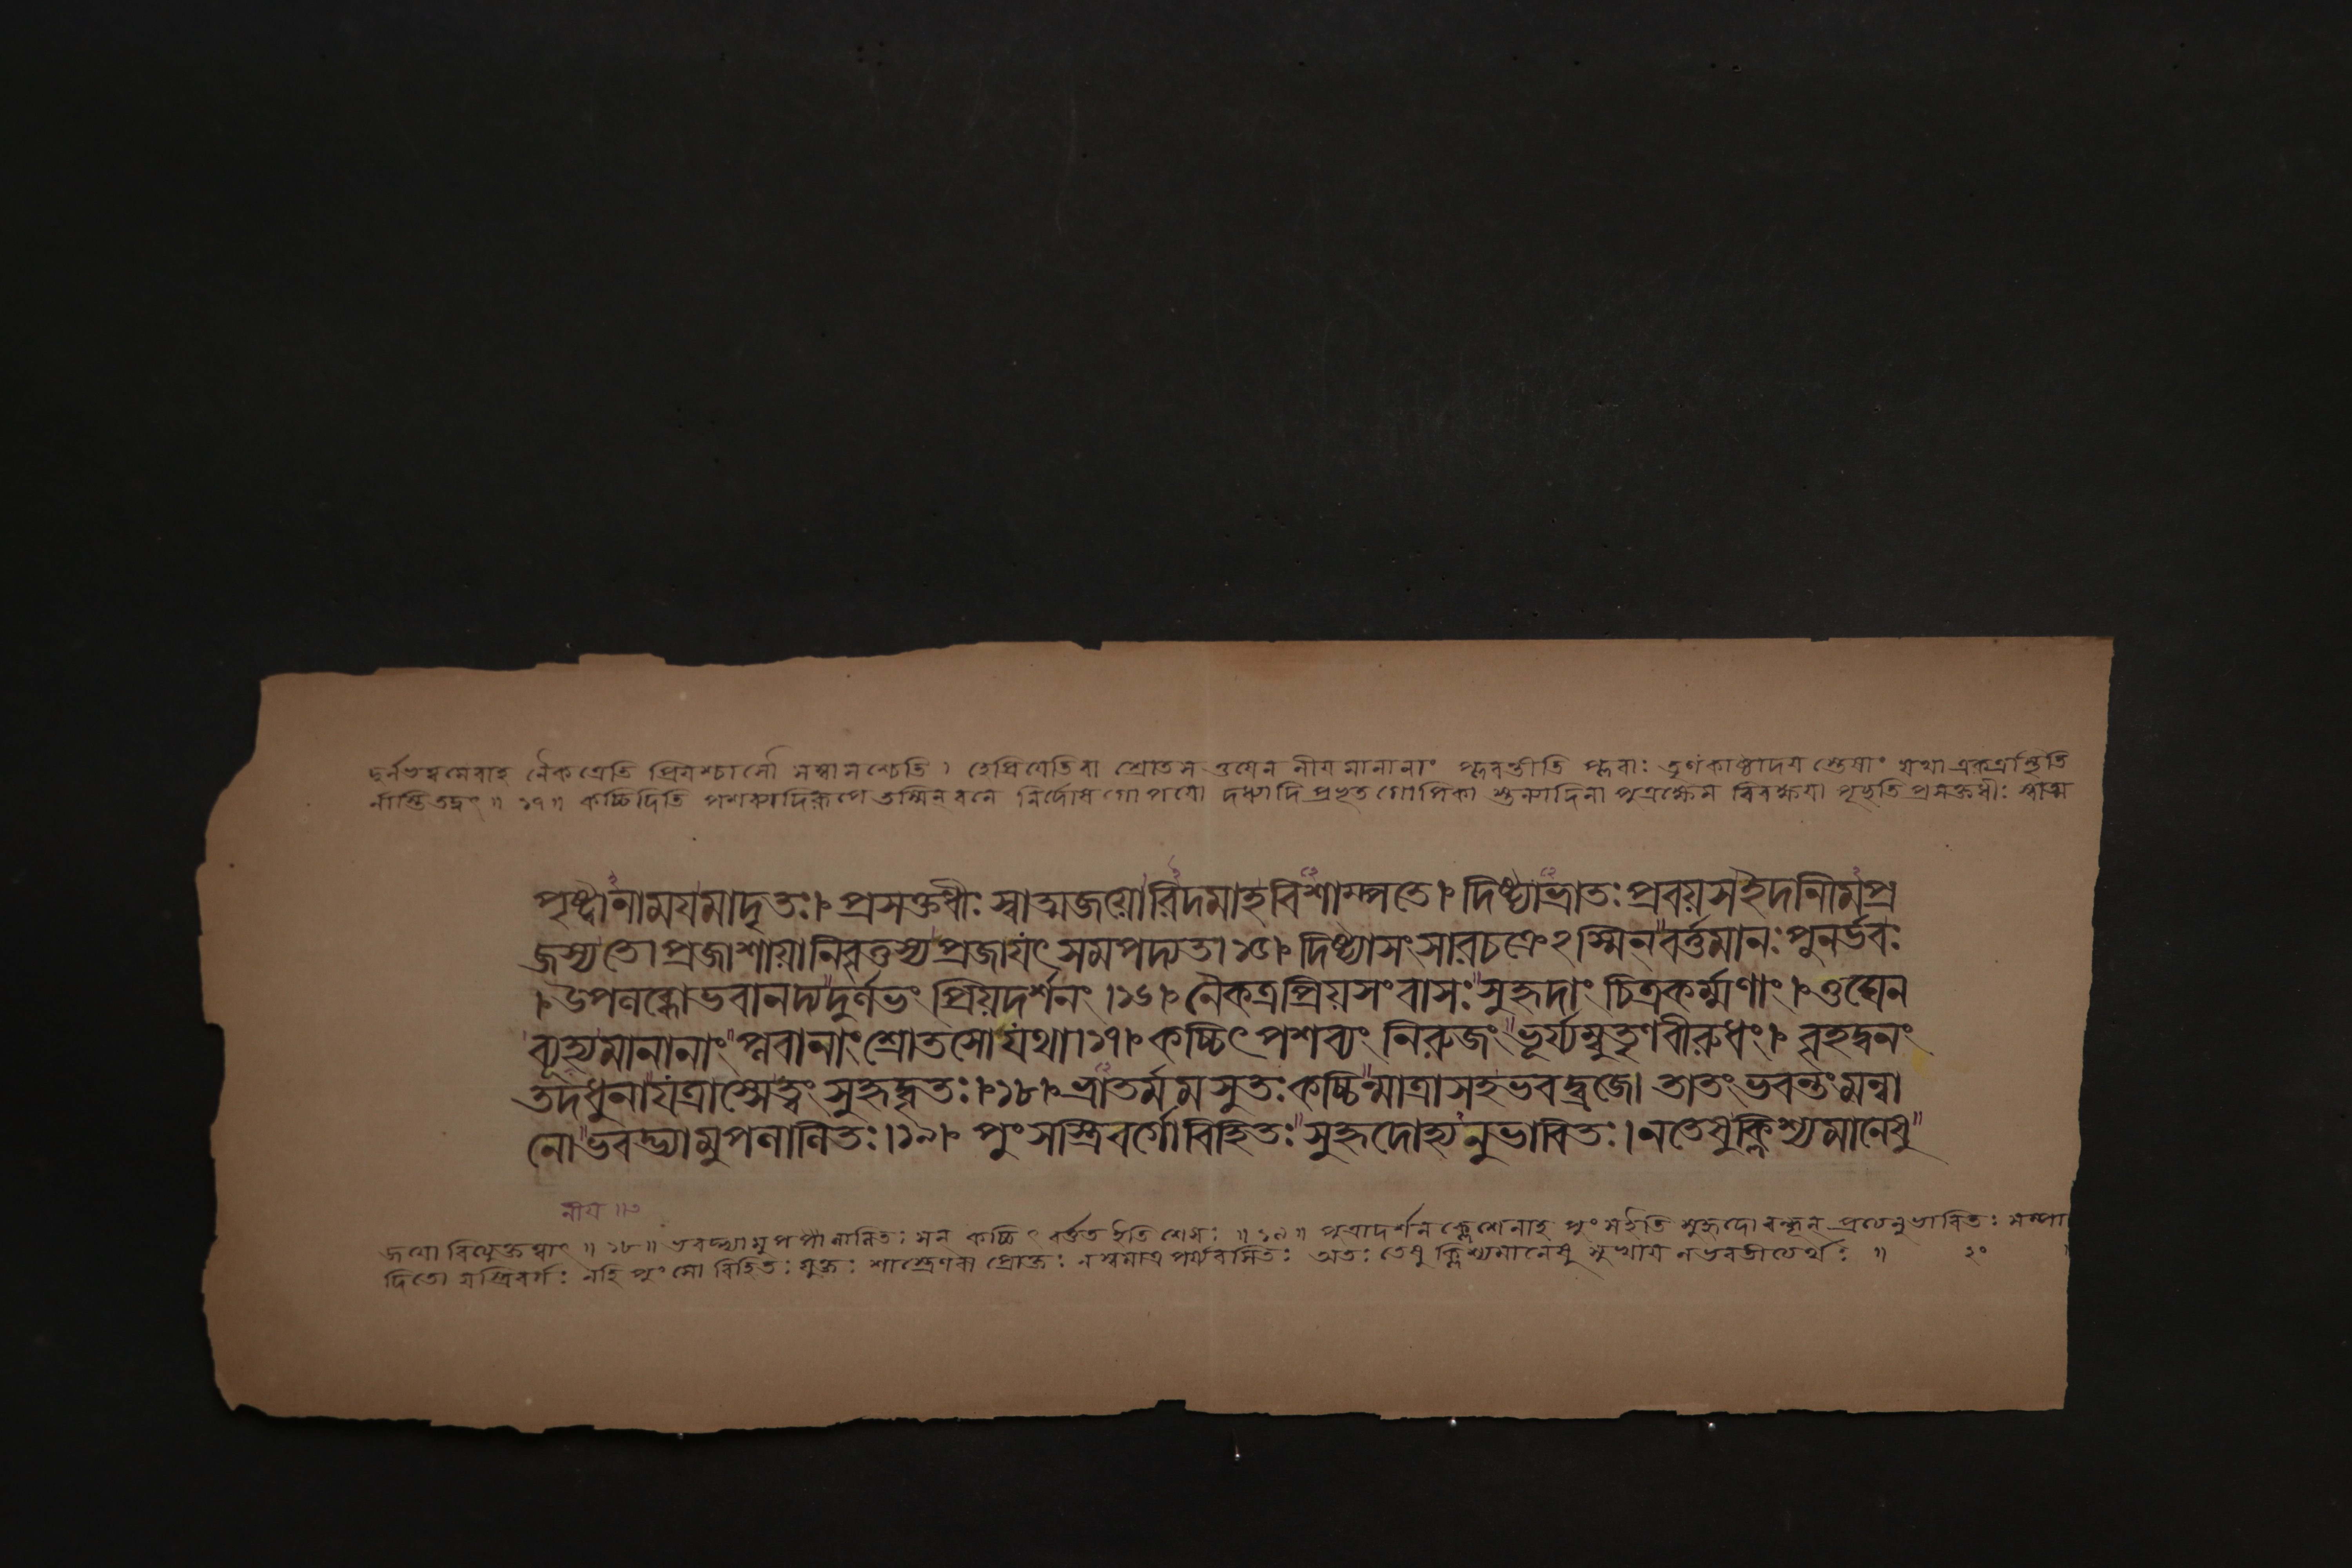 দুর্লভত্বমেবাহ নৈকত্রেতি প্রিয়শ্চাসৌ সম্বাসশ্চেতি । হেপ্রিয়েতিবা শ্রোতস ওঘেন নীয়মানানাং প্লবন্তীতি প্লবাঃ তৃণকাষ্ঠাদয় স্তেষাং যথা একত্রস্থিতি
র্নাস্তিতদ্বৎ ॥ ১৭॥ কচ্চিদিতি তস্মিন্ বনে প্রসক্তধীঃ স্বাত্ম
পৃষ্ট্বানাময়মাদৃতঃ।৷ প্রসক্তধীঃ স্বাত্মজয়োরিদমাহবিশাম্পতে।৷ দিষ্ট্যাভ্রাতঃ প্রবয়সইদানীমপ্র
জস্যতে। প্রজাশায়ানিবৃত্তস্যপ্রজাযৎ সমপদ্যত। ১৫।৷ দিষ্ট্যাসংসারচক্রেঽস্মিন্ বর্ত্তমানঃ পুনর্ভবঃ
।৷ উপলব্ধোভবানদ্যদুর্লভং প্রিয়দর্শনং ।১৬।৷ নৈকত্রপ্রিয়সংবাসঃ সুহৃদাং চিত্রকর্ম্মণাং ।৷ ওঘেন
ব্যূহ্যমানানাং প্লবানাং শ্রোতসোযথা।১৭।৷ কচ্চিৎ পশব্যং নিরুজং ভূর্য্যম্বুতৃণবীরুধং।৷ বৃহদ্বনং
তদধুনাযত্রাস্সেত্বং সুহৃদ্বৃতঃ।৷১৮।৷ ভ্রাতর্ম্মমসুতঃ কচ্চিন্মাত্রাসহভবদ্ব্রজে। তাতং ভবন্তং মন্বা
নো ভবদ্ভ্যামুপলালিতঃ।১৯।৷ পুংসস্ত্রিবর্গোবিহিতঃ সুহৃদোহ্যনুভাবিতঃ। নতেষুক্লিশ্যমানেষু
জয়ো ॥ ১৮॥ ভবদ্ভ্যামুপলালিতঃ সন্ কচ্চিৎ বর্ত্তত ইতি শেষঃ ॥১৯॥ পুত্রাদর্শন ক্লেশেনাহ পুংসইতি সুহৃদো বন্ধূন্ অনুভাবিতঃ সম্পা
দিতো যস্ত্রিবর্গঃ সহি পুংসো বিহিতঃ যুক্তঃ শাস্ত্রেণবা প্রোক্তঃ অতঃ তেষু ক্লিশ্যমানেষু সুখায় নভবতীত্যর্থঃ ॥ ২০